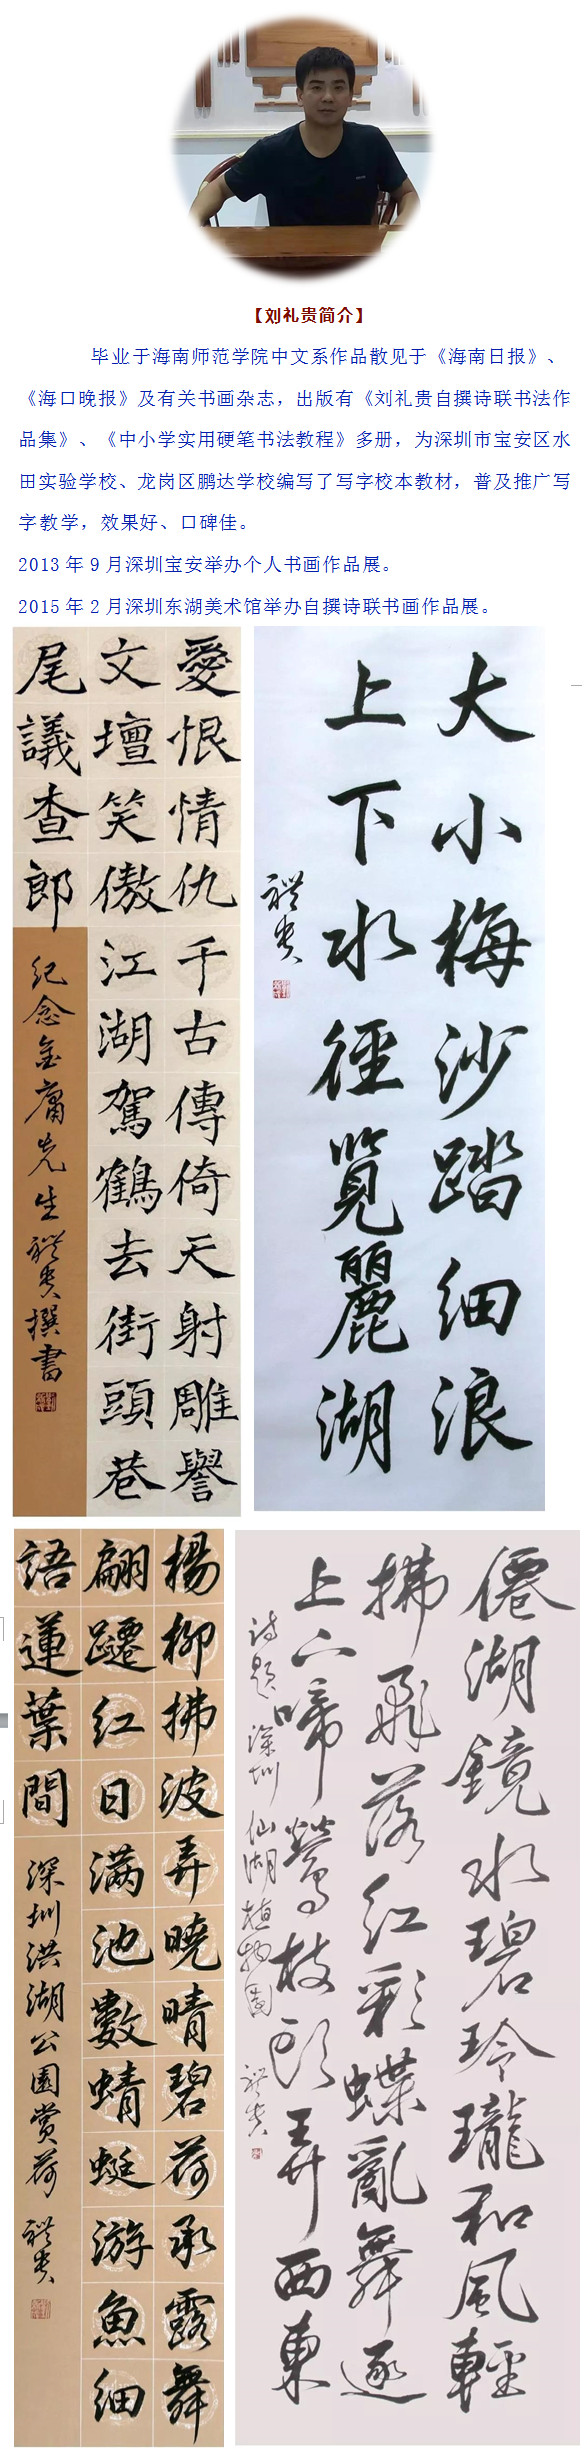 【刘礼贵简介】
毕业于海南师范学院中文系作品散见于《海南日报》、
《海口晚报》及有关书画杂志，出版有《刘礼贵自撰诗联书法作
品集》、《中小学实用硬笔书法教程》多册，为深圳市宝安区水
田实验学校、龙岗区鹏达学校编写了写字校本教材，普及推广写
字教学，效果好、口碑佳。
2013 年 9 月深圳宝安举办个人书画作品展。
2015 年 2 月深圳东湖美术馆举办自撰诗联书画作品展。
愛恨情仇千古傳倚天射雕譽
文壇笑傲江湖駕鶴去街頭巷
尾議查郎
纪念金庸先生禮贵撰書
大小梅沙踏细浪
上下水径覽麗湖
禮贵
楊柳拂波弄曉晴碧荷承露舞
翩躚红日满池數蜻蜓游魚细
語蓮葉間
深圳洪湖公園赏荷 禮贵
僊湖鏡水碧玲瓏和风輕
拂飛落红彩蝶亂舞逐
上下啼鶯枝头弄西東
诗题深圳仙湖植物園 禮贵